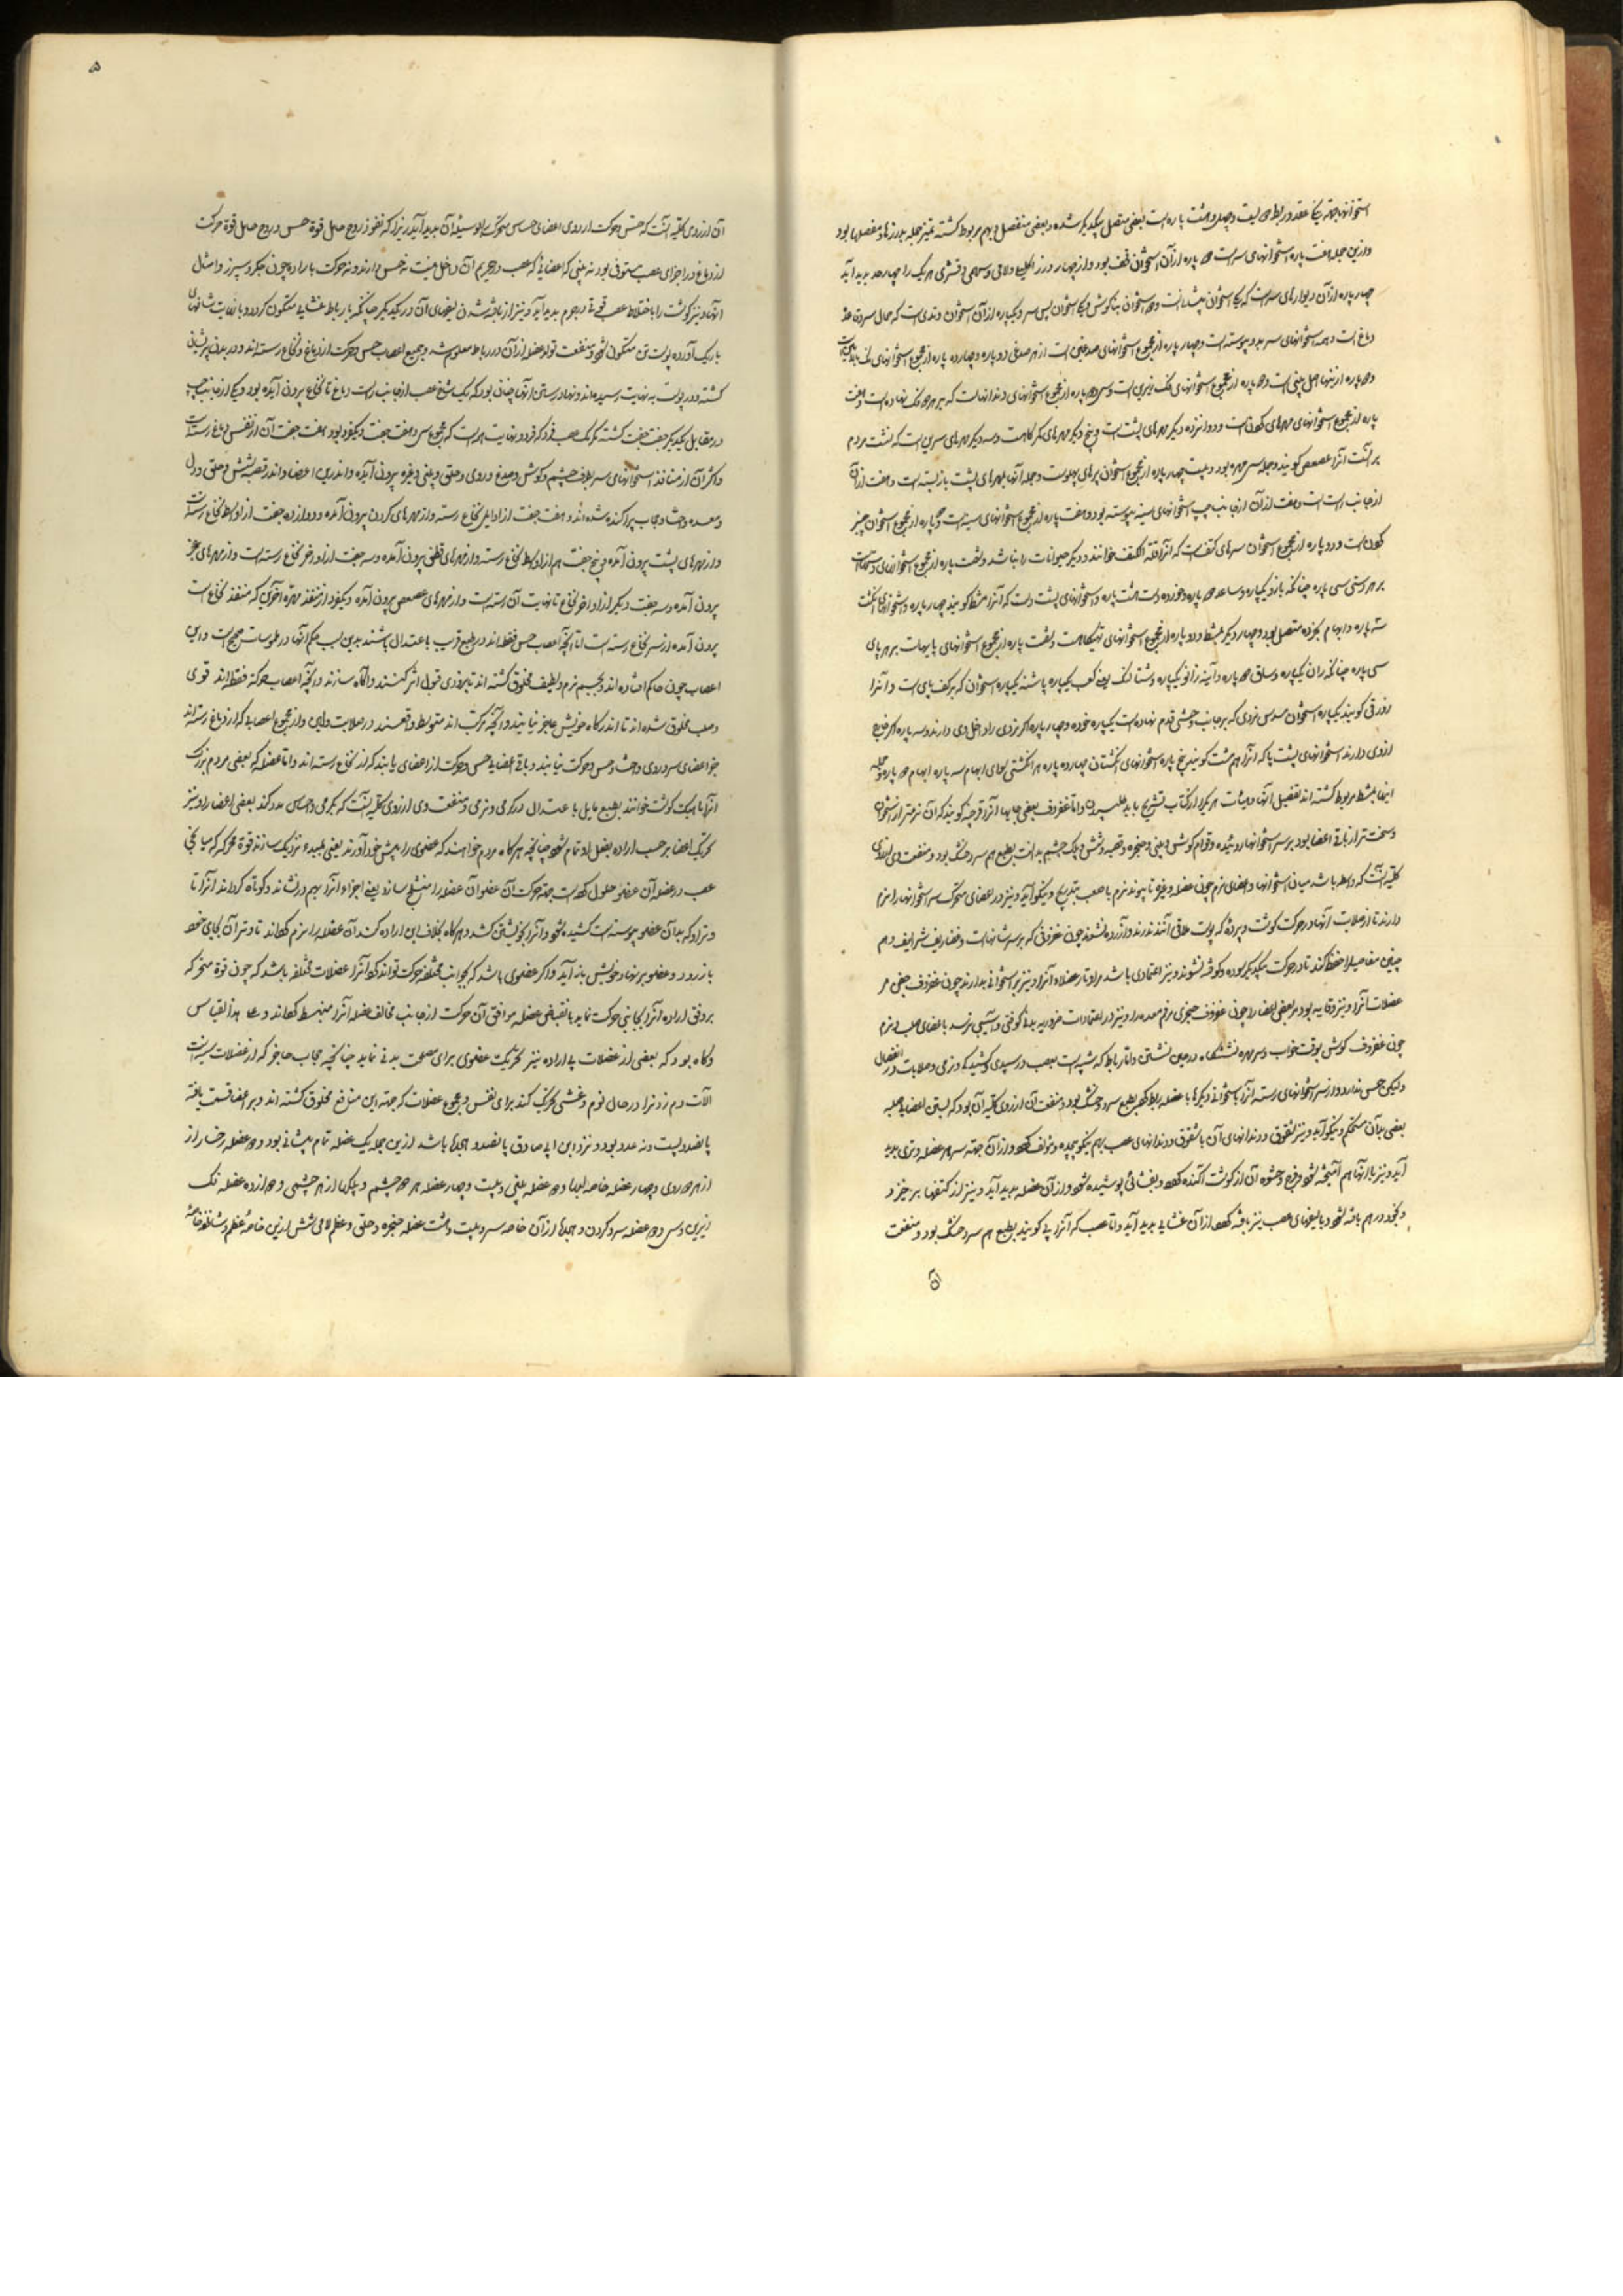 استخوانها بجهة یکجا عقد در ربط دو لیست و چهل و هشت پاره است بعضی متصل بیکدیگر شده و بعضی منفصل و بهم مربوط کشته تمیز جمله بدرزها و مفصلها بود
و ازین جمله هفت پاره استخوانهای سر است دو پاره از آن استخوان قحف بود و از چهار درز اکلیلی و لامی و سهمی و قشری هر یک را چهار حد بدید آید
چهار پاره از آن دیوارهای سر است که یکی استخوان پیشانیست و دو استخوان بناکوش و یکی استخوان پس سر و یکپاره از آن استخوان وتدی است که حمال سر و قاعدهٔ
دماغ است و همه استخوانهای سر بدو پیوسته است و چهار پاره از مجموع استخوانهای صدغین است از هر صدغی دو پاره و چهارده پاره از مجموع استخوانهای فک بالایین است
و دو پاره از تنها اصل بینی است و دو پاره از مجموع استخوانهای فک زیرین است و سی دو پاره از مجموع استخوانهای دندانهاست که بر هر دو فک نهاده است و هفت
پاره از مجموع استخوانهای مهرهای کردنست و دوازده دیکر مهرهای پشت است و پنج دیکر مهرهای کمرکاهست و سه دیکر مهرهای سرین است که نشست مردم
بر آنست آنرا عصعص کویند و جمله سی مهره بود و بیست چهار پاره از مجموع استخوان پرهای پهلوست و جمله آنها بمهرهای پشت باز بسته است و هفت از آن
از جانب راست است و هفت از آن از جانب چپ باستخوانهای سینه پیوسته بود و هفت پاره از مجموع استخوانهای سینه است و دو پاره از مجموع استخوان چنبر
کردن است و دو پاره از مجموع استخوان سرهای کتف است که آنرا قلة الکتف خوانند و دیکر حیوانات را نباشد و شصت پاره از مجموع استخوانهای دستهاست
بر هر دستی سی پاره چنانکه بازو یکپاره و ساعد دو پاره و خرده دست هشت پاره و استخوانهای پشت دست که آنرا مشط کویند چهار پاره و استخوانهای انکشت
سه پاره و ابهام بخرده متصل بود و چهار دیکر بمشط و دو پاره از مجموع استخوانهای تهیکاهست و شصت پاره از مجموع استخوانهای پایهاست بر هر پای
سی پاره چنانکه ران یکپاره و ساق دو پاره و آینه زانو یکپاره و شتالنک یعنی کعب یکپاره پاشنه یکپاره استخوان که بر کف پای است و آنرا
زورقی کویند یکپاره استخوان مسدس نردی که بر جانب وحشی قدم نهاده است یکپاره خرده و چهار پاره
ازوی دارند استخوانهای پشت پا که آنرا هم مشت کویند پنج پاره استخوانهای انکشتان چهارده پاره هر انکشتی سوای ابهام سه پاره ابهام دو پاره و جمله
اینها بمشط مربوط کشته اند تفصیل آنها و هیئات هر یک را از کتاب تشریح باید طلبیدن و اما غضروف بعضی جایها آنرا قرچنه کویند که آن نرمتر از استخوان
و سخت تر از باقی اعضا بود بر سر استخوانها روئیده و قوام کوش و بینی و حنجره و قصبه و شش و پلک چشم بدانست بطبع هم سرد و خشک بود و منفعت وی از روی
کلیه آنست که واسطه باشد میان استخوانها و اعضای نرم چون عضله و غیره تا پیوند نرم با صعب بتدریج و نیکو آید و نیز در اعضای متحرک سر استخوانها را نرم
دارند تا از صلابت آنها در حرکت کوشت و پرده که پوست ملاقی آنند ندرند و آزرده نشوند چون غضروفی که بر سر شانهاست و غضاریف شراسیف و هم
چنین مفاصل را حفظ کند تا در حرکت بیکدیکر سوده و کوفته نشوند و نیز اعتمادی باشد مر اوتار عضلات آنرا و نیز بر استخوانی بدارند چون غضروف جفن مر
عضلات آنرا و نیز وقایه بود مر بعضی اعضا را چون غضروف خنجری مر فم معده را و نیز در اعتمادات ضروریه بدنی کوفتی و آسیبی نرسد باعضای صلب و نرم
چون غضروف کوش بوقت خواب و سر مهره نشستنکاه در حین نشستن و اما رباط که شبیه است بعصب در سپیدی و کشیدکی و نرمی و صلابت در انفصال
ولیکن حس ندارد و از سر استخوانهای رسته آنرا باستخوانی دیکر یا با عضله ربط کند بطبع سرد و خشک بود و منفعت آن از روی کلیه آن بود که بستن اعضای صلبه
بعضی بدآن مستحکم و نیکو آید و نیز شقوق و دندانهای آن با شقوق و دندانهای عصب بهم نیکو پیچیده و مؤلف کشته و از آن جهته سر هر عضله وتری بدید
آید و نیز با آنها هم آمیخته شود و فرج و حشو آن از کوشت آکنده کردد و بغشائی پوشیده شود و از آن عضله بدید آید و نیز از کنفها برخیزد
و بخود در هم بافته شود و با لیفهای عصب نیز بافته کردد از آن غشایی بدید آید و اما عصب که آنرا پی کویند بطبع هم سرد و خشک بود و منفعت
آن
۵
آن از روی کلیه آنست که حس و حرکت از روی اعضای حساس متحرک بوسیله آن بدید آید زیرا که نفوذ روح حامل قوة حس و روح حامل قوة حرکت
از دماغ در اجزای عصب مستوفی بود نه بینی که اعضایی که عصب در جرم آن داخل نیست نه حس دارند و نه حرکت با اراده چون جکر و سپرز و امثال
آنها و نیز کوشت را باختلاط عصب قوتی در جرم بدید آید و نیز از بافته شدن لیفهای آن در یکدیکر چنانکه با رباط غشایی متکون کردد و با نهایت شاخهای
باریک آورده پوست تن متکون شود و منفعت تولد عضله از آن در رباط معلوم شد و جمیع اعصاب حس و حرکت از دماغ و نخاع رسته اند و در بدن پریشان
کشته و در پوست به نهایت رسیده اند و نهاد رستن آنها چنان بود که یک شاخ عصب از جانب راست دماغ تا نخاع بیرون آمده بود و یکی از جانب چپ
در مقابل یکدیکر جفت جفت کشته مکر یک عصب فرد که فرد و نهایت است که مجموع سی و هفت جفت و یک فرد بود هفت جفت آن از نفس دماغ رسته است
و اکثر آن از منافذ استخوانهای سر بطرف چشم و کوش و صدغ و روی و حلق و بینی و غیره بیرون آمده و اندرین اعضا و اندر قصبه شش و حلق و دل
و معده و احشا و حجاب پراکنده شده اند و هشت جفت از اوایل نخاع رسته و از مهرهای کردن بیرون آمده و دوازده جفت از اواسط نخاع رسته است
و از مهرهای پشت بیرون آمده و پنج جفت هم از اواسط نخاع رسته و از مهرهای قطن بیرون آمده و سه جفت از اواخر نخاع رسته است و از مهرهای عجز
بیرون آمده و سه جفت دیکر از اواخر نخاع تا نهایت آن رسته است و از مهرهای عصعص بیرون آمده و یک فرد از منفذ مهره آخری که منفذ نخاع است
بیرون آمده از سر نخاع رسته است اما آنچه اعصاب حس فقط اند در طبع قریب باعتدال باشند بدین سبب حکم آنها در ملموسات صحیح است و این
اعصاب چون حاکم افتاده اند و بجسم نرم و لطیف مخلوق کشته اند تا بزودی قبول اثر کنند و آگاه سازند و آنچه اعصاب حرکة فقط اند قوی
وصلب مخلوق شده اند تا اندر کاه خویش عاجز نیایند و آنچه مرکب اند متوسط واقعند در صلابت و لین و از مجموع اعصابی که از دماغ رسته اند
جز اعضای سر و روی و احشا حس و حرکت نیابند و باقی اعضا حس و حرکت از اعصابی یابند که از نخاع رسته اند و اما عضله که بعضی مردم بزرک
آنرا ماهیک کوشت خوانند بطبع مایل باعتدال در کرمی و نرمی و منفعت وی از روی کلیه آنست که بکرمی و احساس مدد کند بعضی اعضا را و نیز
تحریک اعضا بر حسب اراده بفعل او تمام شود چنانچه هر کاه مردم خواهند که عضوی را به پیش خود آورند یعنی بمبدء نزدیک سازند قوة محرکه که بمیانجی
عصب در عضله آن عضو حلول کرده است جهة حرکت آن عضو آن عضله را متشنج سازد یعنی اجزاء آنرا بهم در نشاند و کوتاه کرداند آنرا تا
وتر او که بدآن عضو پیوسته است کشیده شود و آنرا بخویشتن کشد و هر کاه بخلاف این اراده کند آن عضله را نرم کرداند تا وتر آن بجای خود
باز رود و عضو بر نهاد خویش باز آید و اکر عضوی باشد که بجوانب مختلفه حرکت تواند کرد آنرا عضلات مختلفه باشد که چون قوة محرکه
بر وفق اراده آنرا بجانبی حرکت نماید بانقباض عضله موافق آن حرکت از جانب مخالف عضله آنرا منبسط کرداند و علی هذا القیاس
و کاه بود که بعضی از عضلات بی اراده نیز تحریک عضوی برای مصلحت بدنی نماید چنانچه حجاب حاجز که از عضلات سینه است
آلات دم زدنرا در حال نوم و غشی تحریک کند برای تنفس و مجموع عضلات که جهته این منافع مخلوق کشته اند و بر اعضا قسمت یافته
پانصد و بیست و نه عدد بود و نزد ابن ابی صادق پانصد و هجده باشد ازین جمله یک عضله تمام پیشانی بود و دو عضله رخسار از
از هر دو روی و چهار عضله خاصه لبها و دو عضله بینی و بیست و چهار عضله هر دو چشم و پلکها از هر چشمی دوازده عضله فک
زیرین و سی و دو عضله سر و کردن و هجده از آن خاصه سر و بیست و هشت عضله حنجره و حلق و عظم لامی شش ازین خاصهٔ عظم و شانزده خاصهٔ